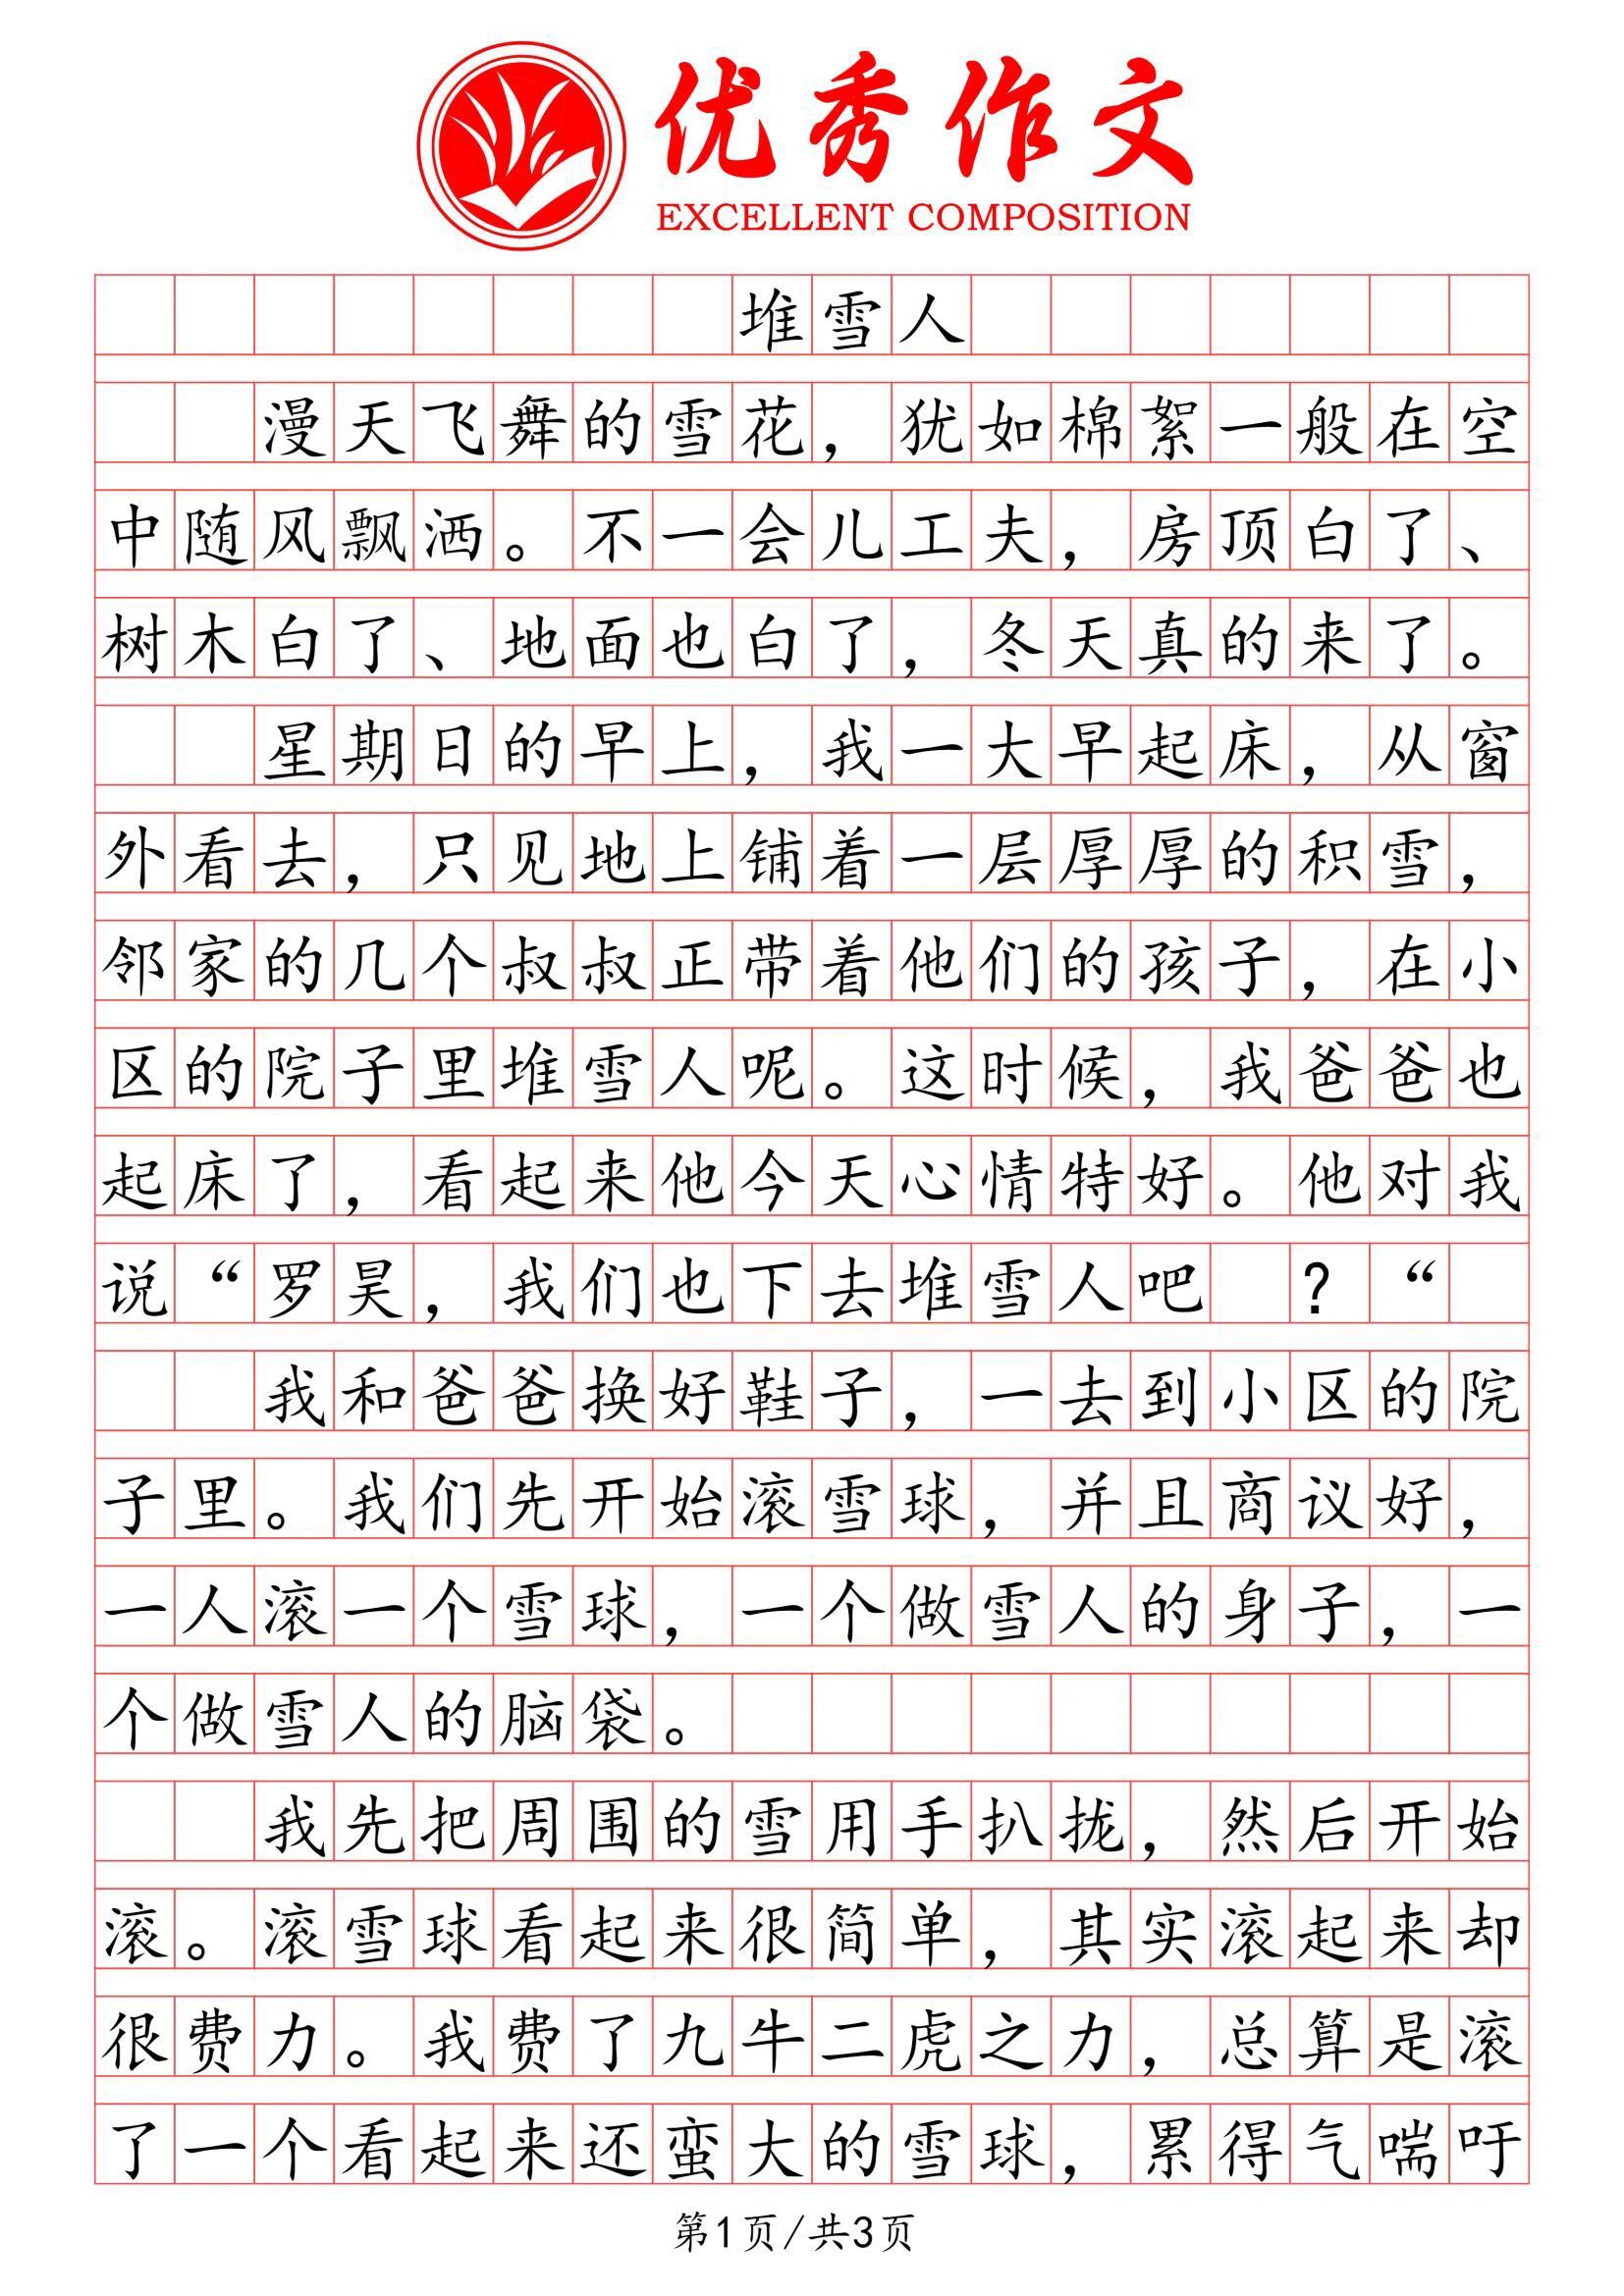 优秀作文
EXCELLENT COMPOSITION
堆雪人
漫天飞舞的雪花，犹如棉絮一般在空
中随风飘洒。不一会儿工夫，房顶白了、
树木白了、地面也白了，冬天真的来了。
星期日的早上，我一大早起床，从窗
外看去，只见地上铺着一层厚厚的积雪，
邻家的几个叔叔正带着他们的孩子，在小
区的院子里堆雪人呢。这时候，我爸爸也
起床了，看起来他今天心情特好。他对我
说“罗昊，我们也下去堆雪人吧 ？“
我和爸爸换好鞋子，一去到小区的院
子里。我们先开始滚雪球，并且商议好，
一人滚一个雪球，一个做雪人的身子，一
个做雪人的脑袋。
我先把周围的雪用手扒拢，然后开始
滚。滚雪球看起来很简单，其实滚起来却
很费力。我费了九牛二虎之力，总算是滚
了一个看起来还蛮大的雪球，累得气喘吁
第1页/共3页